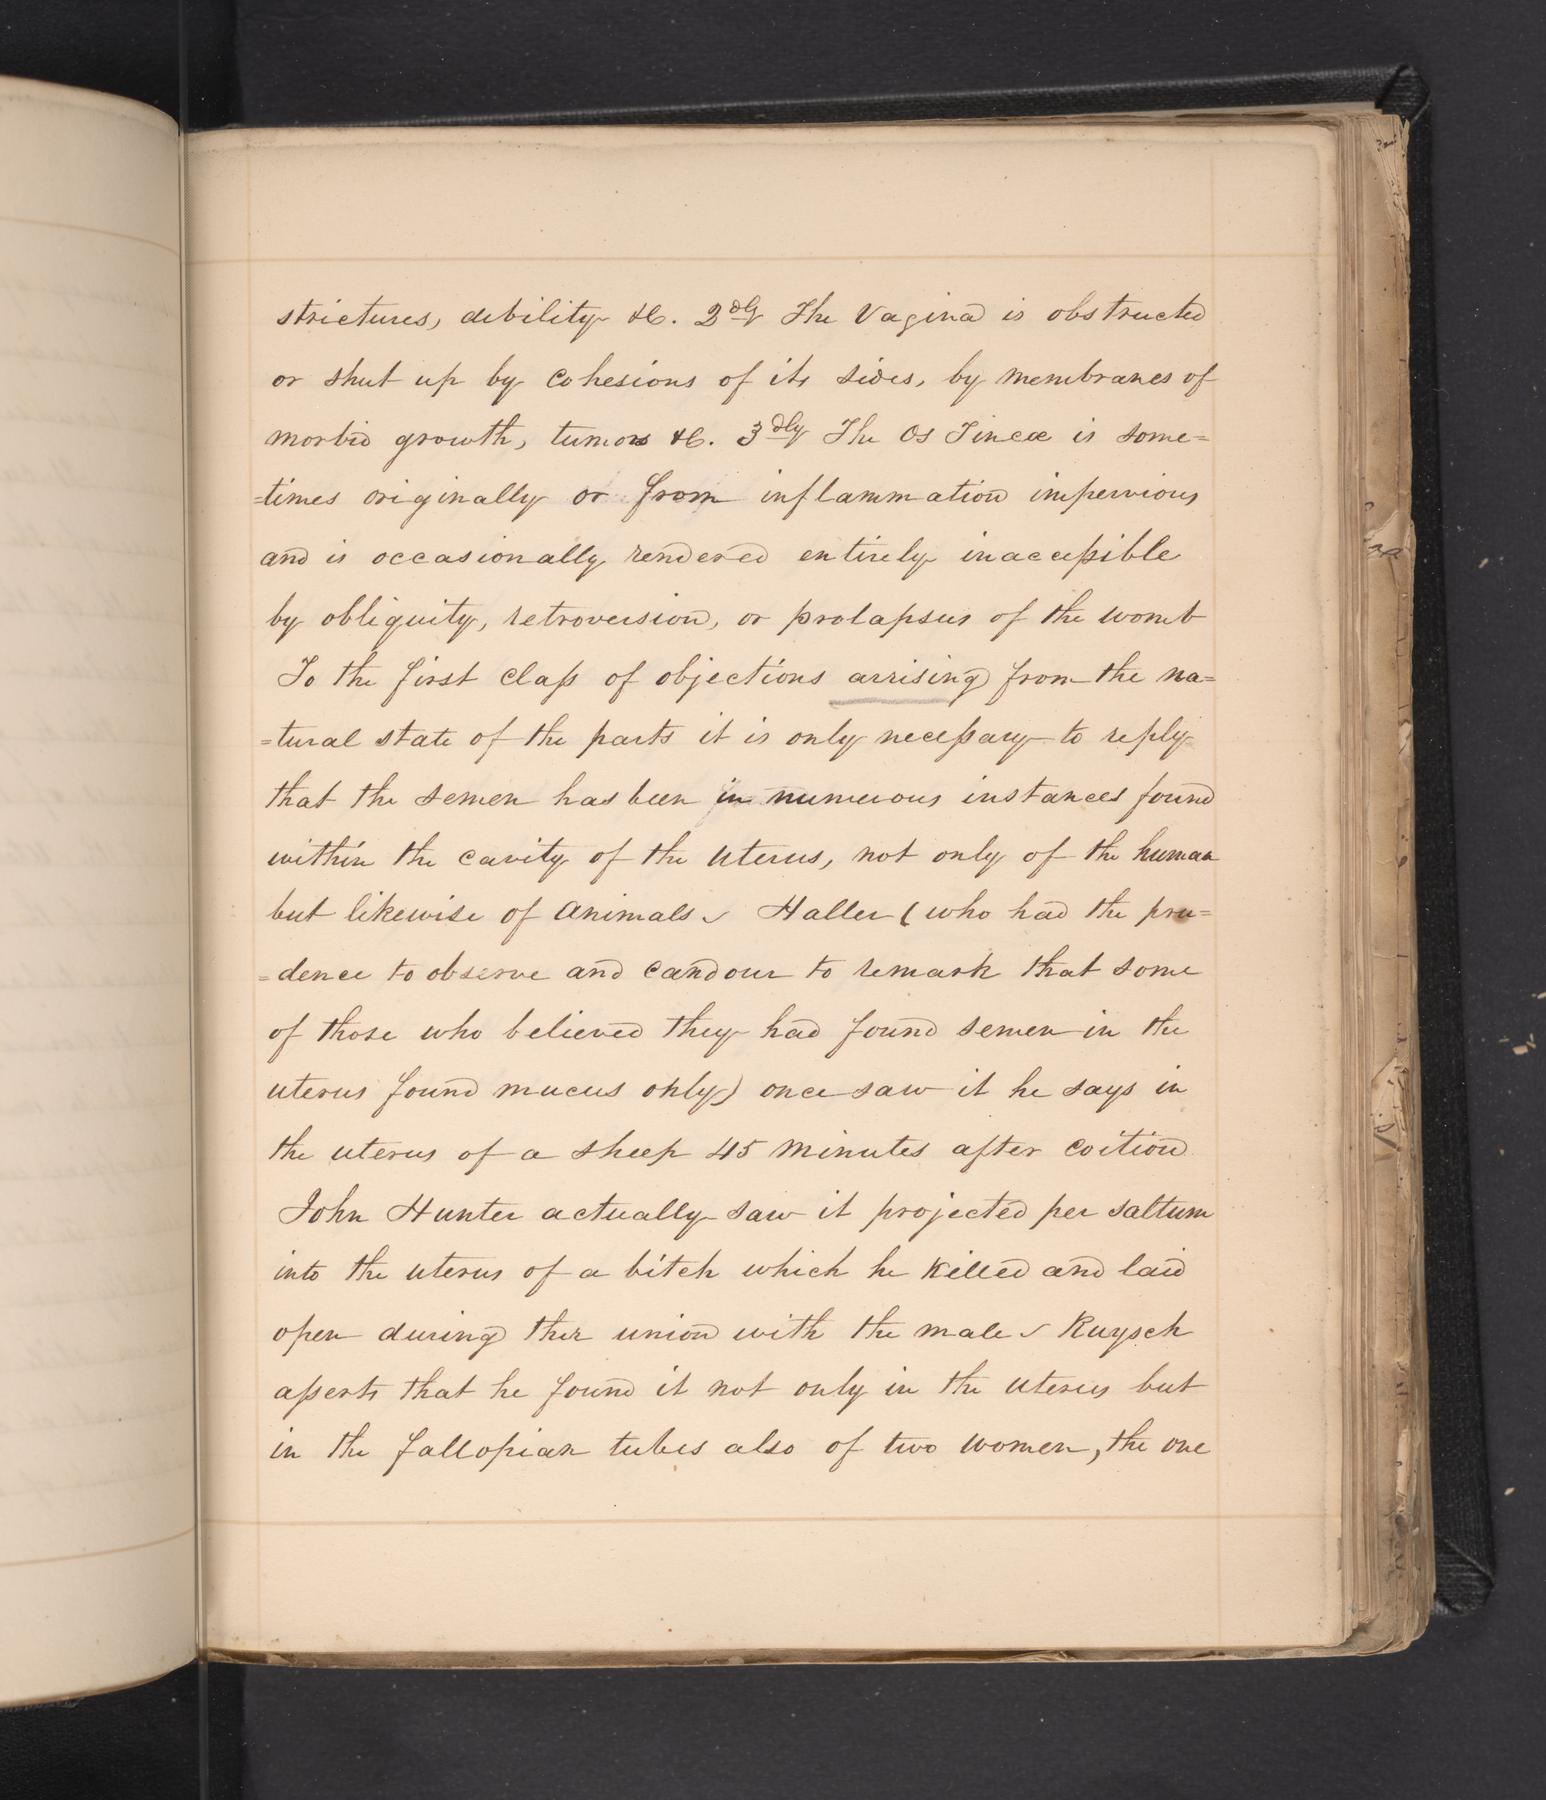 strictures, debility &c. 2dly The Vagina is obstructed
or shut up by cohesions of its sides, by membranes of
morbid growth, tumors &c. 3dly The Os Tincæ is some=
=times originally or from inflammation impervious
and is occasionally rendered entirely inaccessible
by obliquity, retroversion, or prolapsus of the womb
To the first class of objections arrising from the na=
=tural state of the parts it is only necessary to reply
that the semen has been in numerous instances found
within the cavity of the uterus, not only of the human
but likewise of animals Haller (who had the pru=
=dence to observe and candour to remark that some
of those who believed they had found semen in the
uterus found mucus only) once saw it he says in
the uterus of a sheep 45 minutes after coition
John Hunter actually saw it projected per saltum
into the uterus of a bitch which he killed and laid
open during ther union with the male Ruysch
asserts that he found it not only in the uterus but
in the fallopian tubes also of two women, the one